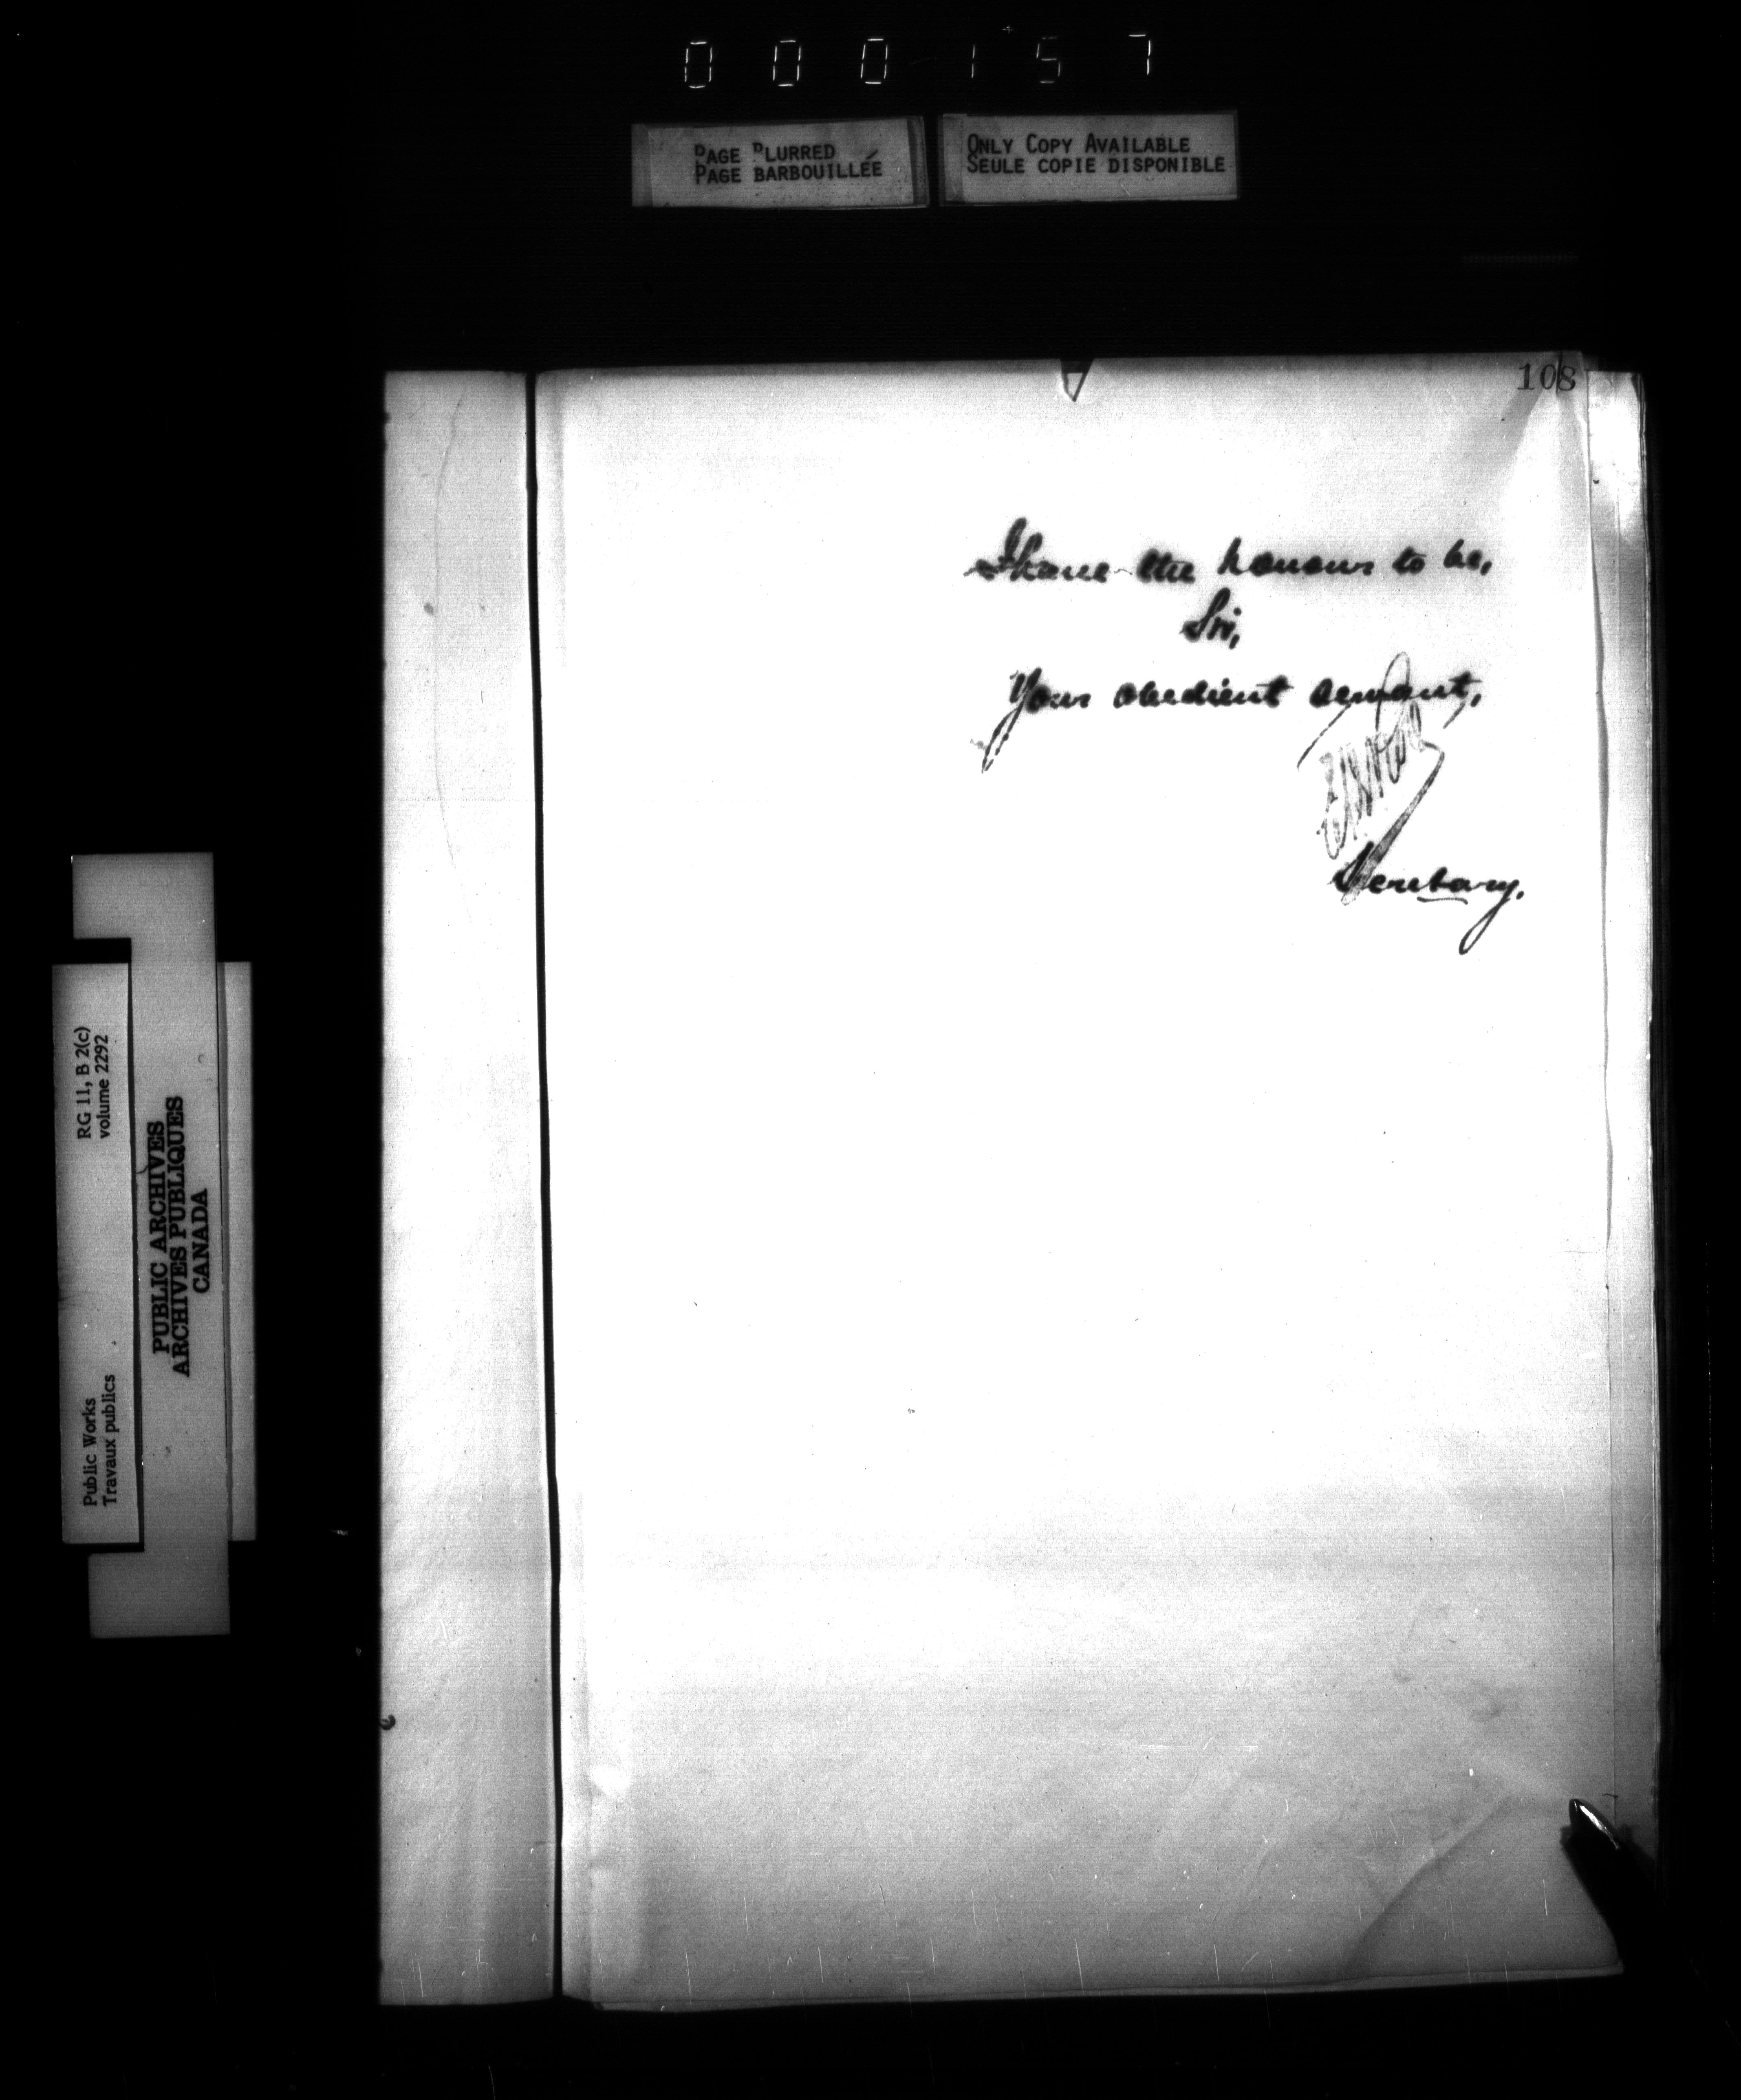 000157
PAGE BLURRED
PAGE BARBOUILLÉE
ONLY COPY AVAILABLE
SEULE COPIE DISPONIBLE
108
I have the honour to be,
Sir,
Your obedient servant,
Secretary.
RG 11, B 2(c)
volume 2292
Public Works
Travaux publics
PUBLIC ARCHIVES
ARCHIVES PUBLIQUES
CANADA